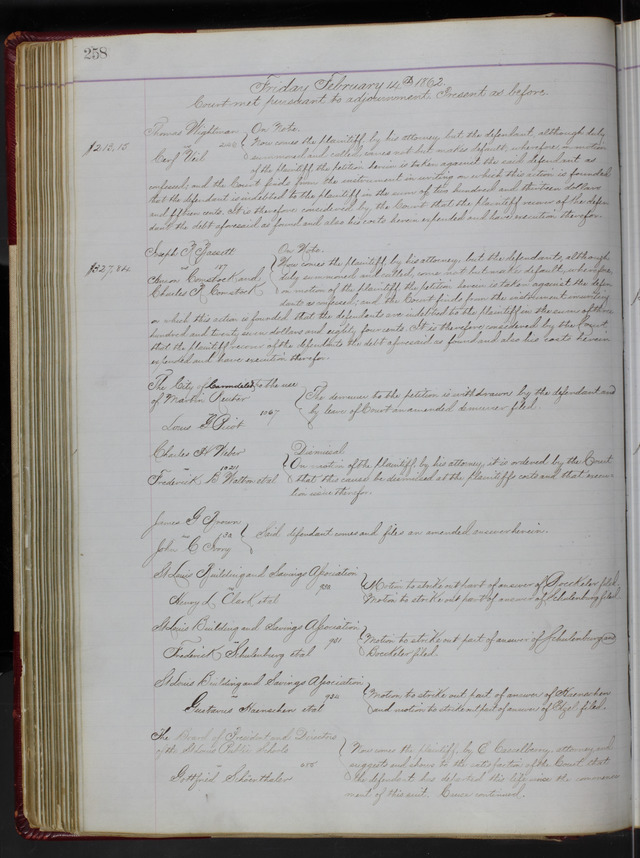 258
Friday February 14th 1862
Court met pursuant to adjournment. Present as before.
Thomas Wightman On Note.
vs 242 Now comes the plaintiff by his attorney but the defendant, although duly
$213,15 Carl Weil summoned and called, comes not but makes default; wherefore on motion
of the plaintiff the petition herein is taken against the said defendant as
confessed; and the Court finds from the instrument in writing on which this action is founded
that the defendant is indebted to the plaintiff in the sum of two hundred and thirteen dollars
and fifteen cents. It is therefore considered by the Court that the plaintiff recover of the defen
dant the debt aforesaid as found and also his costs herein expended and have execution therefor.
Joseph On Note.
vs 157 Now comes the plaintiff by his attorney but the defendants, although
$327,84 Comstock and duly summoned and called, come not but make default; wherefore
Charles Comstock on motion of the plaintiff the petition herein is taken against the defen
dants as confessed; and the Court finds from the instrument in writing
on which this action is founded that the defendants are indebted to the plaintiff in the sum of three
hundred and twenty seven dollars and eighty four cents. It is therefore considered by the Court,
that the plaintiff recover of the defendants the debt aforesaid as found and also his costs herein
expended and have execution therefor.
The City of Carondelet to the use The demurrer to the petition is withdrawn by the defendant and
of Martin by leave of Court an amended demurrer filed
Louis 1067
Charles H Weber Dismissal
vs 1021 On motion of the plaintiff, by his attorney, it is ordered by the Court
Frederick B Walton et al that this cause be dismissed at the plaintiff's costs and that execu
tion issue therefor.
James G Brown
vs 32 Said defendant comes and files an amended answer herein.
John C Ivory
St Louis Building and Savings Association Motion to strike out part of answer of Boeckeler filed.
Henry L Clark et al 930 Motion to strike out part of answer of Schulenburg filed.
St Louis Building and Savings Association
vs 931 Motion to strike out part of answer of Schulenburg and
Frederick Shulenburg et al Boeckeler filed.
St Louis Building and Savings Association
vs 932 Motion to strike out part of answer of Haenschen
Gustavus Haenschen et al and motion to strike out part of answer of filed.
The Board of President and Directors
of the St Louis Public Schools Now comes the plaintiff, by attorney, and
vs suggests and shows to the satisfaction of the Court that
Gottfried Schoenthaler the defendant has departed this life since the commence
ment of this suit. Cause continued.